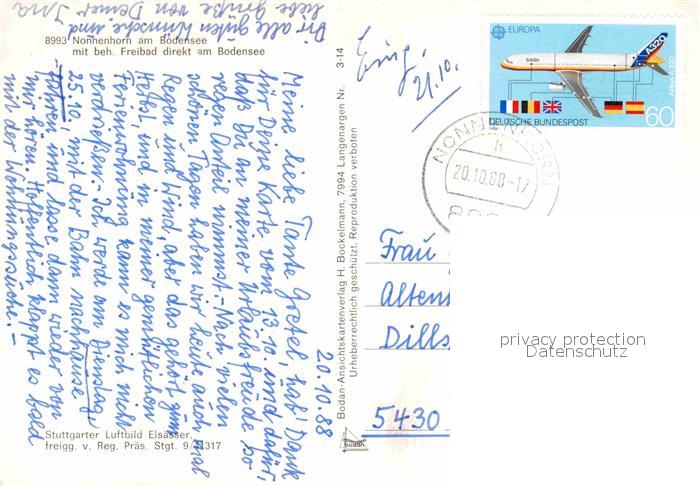 8993 Nonnenhorn am Bodensee
mit beh. Freibad direkt am Bodensee
20.10.88
Meine liebe Tante Gretel, hab' Dank
für Deine Karte vom 13.10. und dafür,
daß Du an meiner Urlaubsfreude so
regen Anteil nimmst. - Nach vielen
schönen Tagen haben wir heute auch mal
Regen und Wind, aber das gehört zum
Herbst, und in meiner gemütlichen
Ferienwohnung kann es mich nicht
verdrießen. - Ich werde am Dienstag,
25.10. mit der Bahn nachhause
fahren und lasse dann wieder von
mir hören. Hoffentlich klappt es bald
mit der Wohnungssuche. -
Dir alle guten Wünsche und
liebe Grüße von Deiner Ina
Stuttgarter Luftbild Elsässer,
freigg. v. Reg. Präs. Stgt. 9/41317
Bodan-Ansichtskartenverlag H. Bockelmann, 7994 Langenargen Nr. 3-14
Urheberrechtlich geschützt. Reproduktion verboten
bodan
Eing.
21.10.
EUROPA
A320
Airbus A320
DEUTSCHE BUNDESPOST
60
NONNENHORN
h
20.10.88-17
Frau
Alten
Dills
5430
privacy protection
Datenschutz